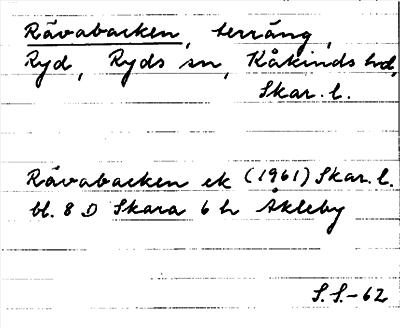 Rävabacken, terräng,
Ryd, Ryds sn, Kåkinds hd,
Skar. l.
Rävabacken ek (1961) Skar. l.
bl. 8 D Skara 6 h Åkleby
S.S.-62